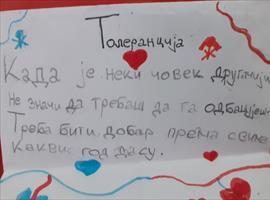 Толеранција
Када је неки човек другачији
Не значи да требаш да га одбацујеш
Треба бити добар према свима
Какви год да су.